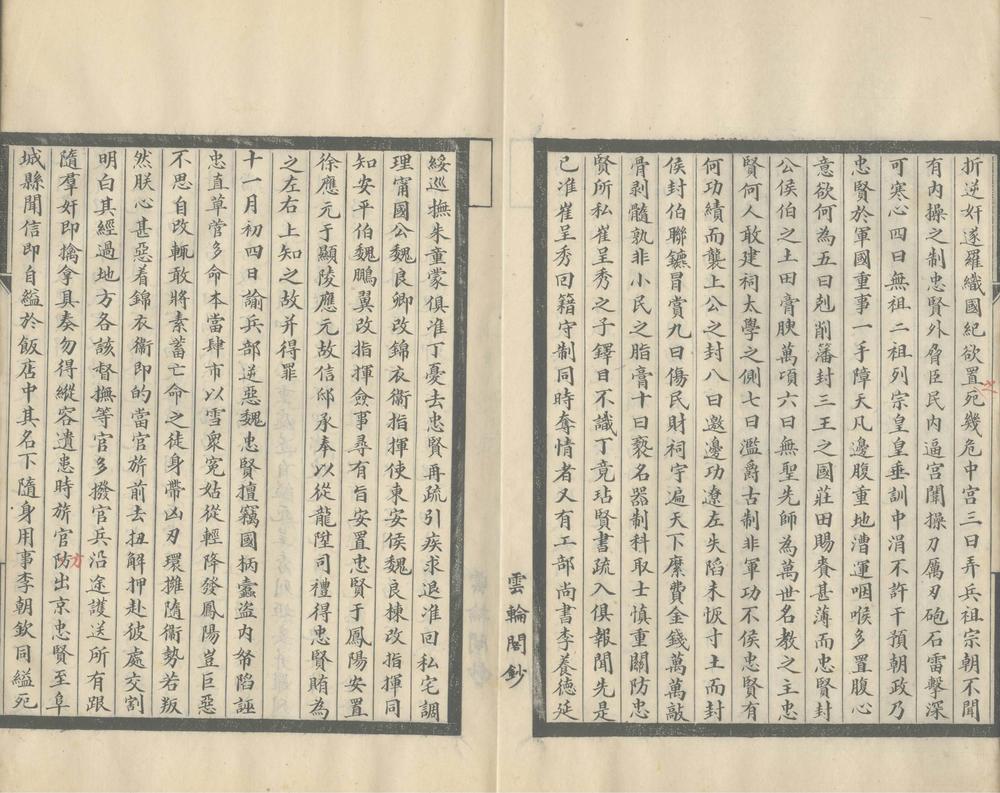 折逆奸遂羅織國紀欲置死幾危中宮三曰弄兵祖宗朝不聞
有內操之制忠賢外脅臣民內逼宮闈操刀厲刃砲石雷擊深
可寒心四曰無祖二祖列宗皇皇垂訓中涓不許干預朝政乃
忠賢於軍國重事一手障天凡邊腹重地漕運咽喉多置腹心
意欲何為五曰剋削藩封三王之國莊田賜賚甚薄而忠賢封
公侯伯之土田膏腴萬頃六曰無聖先師為萬世名教之主忠
賢何人敢建祠太學之側七曰濫爵古制非軍功不侯忠賢有
何功績而襲上公之封八曰邀邊功遼左失陷未恢寸土而封
侯封伯聯鑣冒賞九曰傷民財祠宇遍天下縻費金錢萬萬敲
骨剥髓孰非小民之脂膏十曰褻名器制科取士慎重關防忠
賢所私崔呈秀之子鐸目不識丁竟玷賢書疏入俱報聞先是
已准崔呈秀回籍守制同時奪情者又有工部尚書李養德延
雲輪閣鈔
綏巡撫朱童蒙俱准丁憂去忠賢再疏引疾求退准回私宅調
理甯國公魏良卿改錦衣衞指揮使東安侯魏良棟改指揮同
知安平伯魏鵬翼改指揮僉事尋有旨安置忠賢于鳳陽安置
徐應元于顯陵應元故信邸承奉以從龍陞司禮得忠賢賄為
之左右上知之故并得罪
十一月初四日諭兵部逆惡魏忠賢擅竊國柄蠹盜內帑陷誣
忠直草菅多命本當肆市以雪衆冤姑從輕降發鳳陽豈巨惡
不思自改輒敢將素蓄亡命之徒身帶凶刃環擁隨衞勢若叛
然朕心甚惡着錦衣衞即的當官旂前去扭解押赴彼處交割
明白其經過地方各該督撫等官多撥官兵沿途護送所有跟
隨羣奸即擒拿具奏勿得縱容遺患時旂官防方出京忠賢至阜
城縣聞信即自縊於飯店中其名下隨身用事李朝欽同縊死